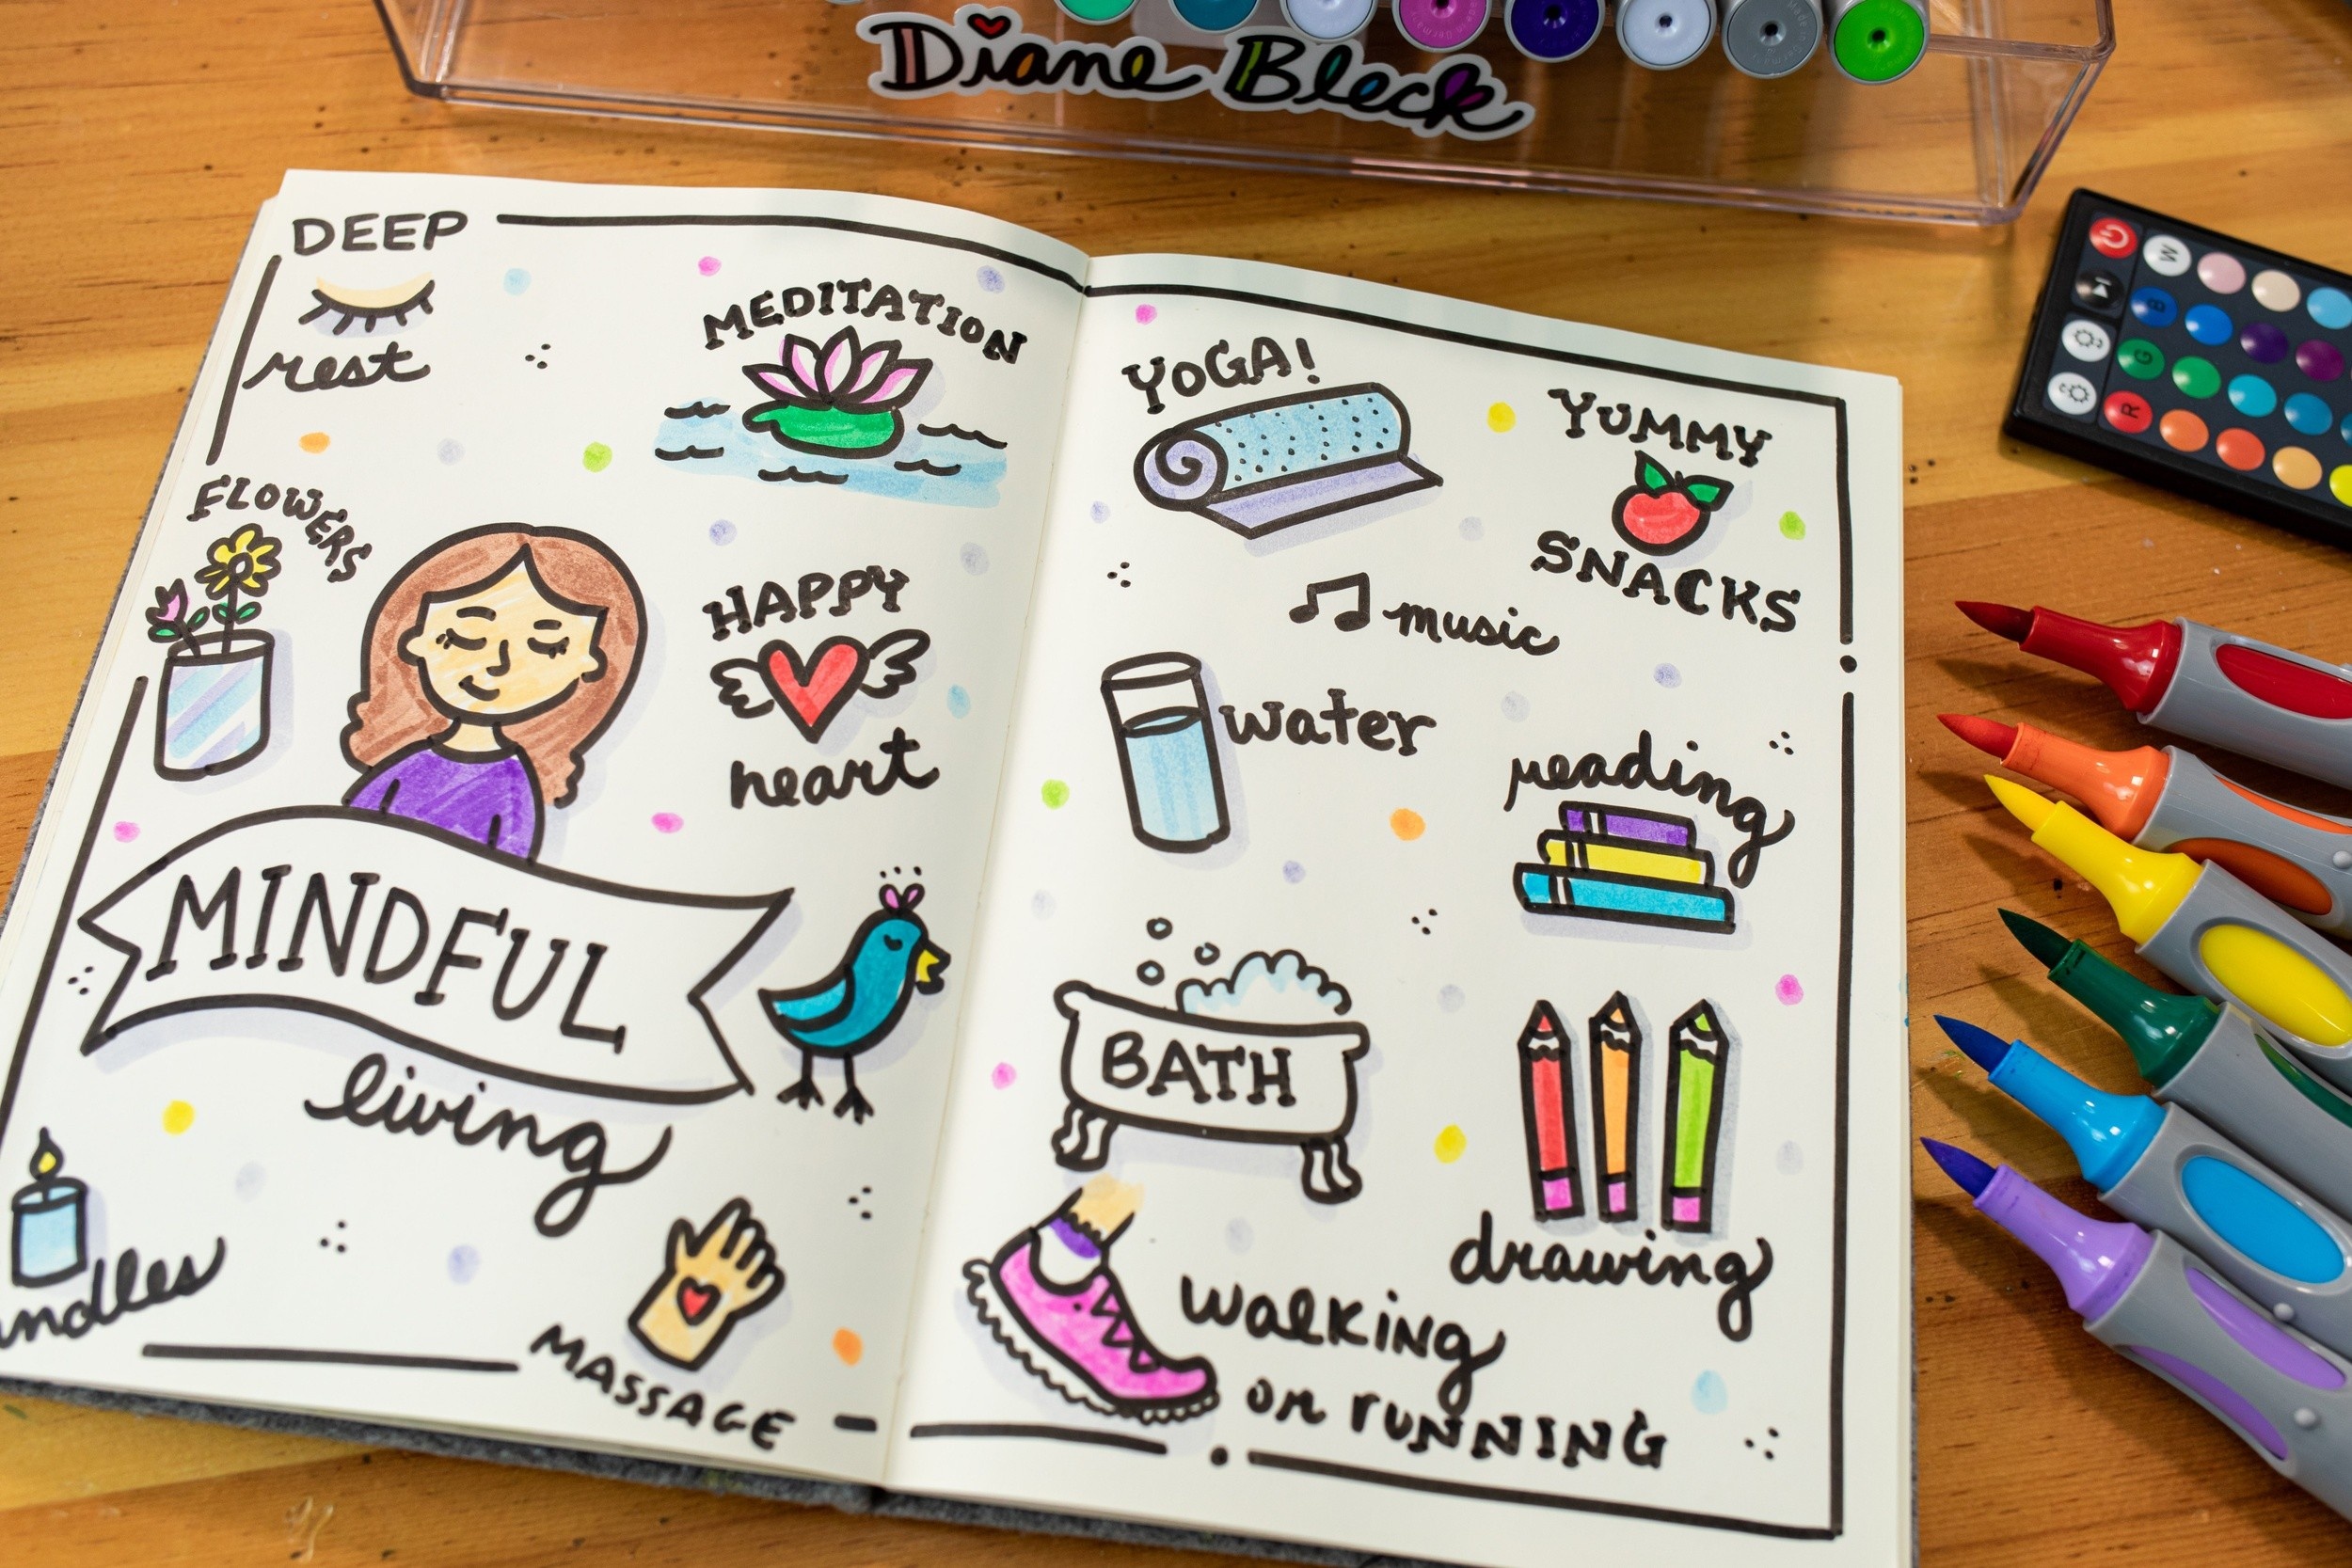 Diane Bleck
DEEP
rest
MEDITATION
FLOWERS
HAPPY
heart
MINDFUL
living
ndles
MASSAGE
YOGA!
YUMMY
SNACKS
music
water
reading
BATH
drawing
walking
or running
W
B
G
R